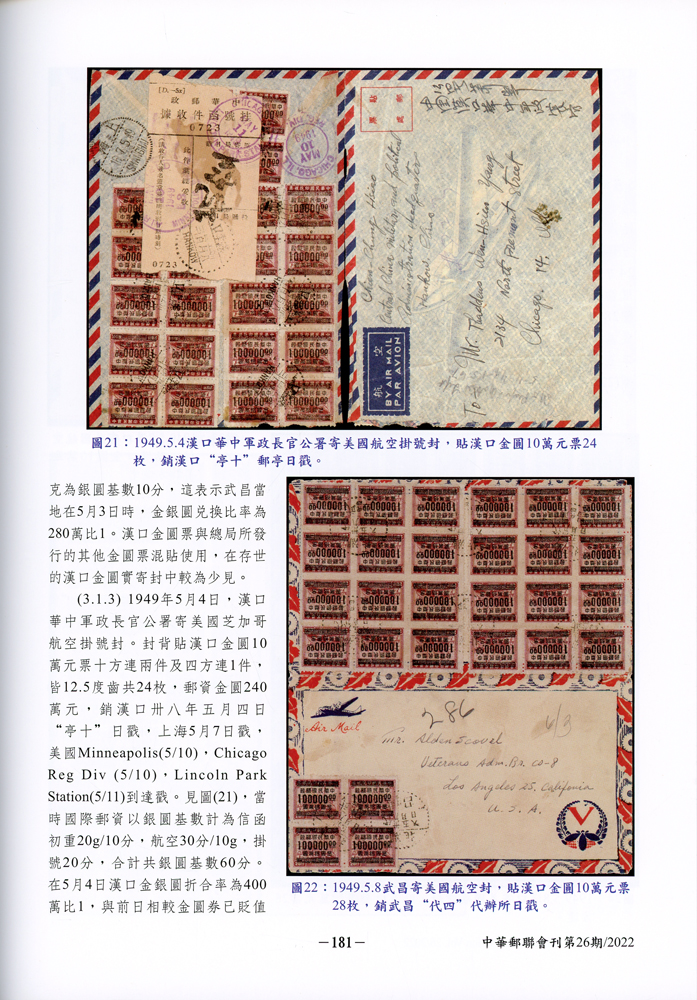 [D.—5x]
中華郵政
掛號函件收據
0723
0723
CHICAGO, ILL.
MAY
10
1949
HANKOW
100000
航空
BY AIR MAIL
PAR AVION
Central China military and political
Administration headquarter
Hankow, China
To: Mr. Thaddeus Wan-Hsien Yang
2134 North Fremont Street
Chicago, 14, U.S.A.
圖21：1949.5.4漢口華中軍政長官公署寄美國航空掛號封，貼漢口金圓10萬元票24
枚，銷漢口“亭十”郵亭日戳。
克為銀圓基數10分，這表示武昌當
地在5月3日時，金銀圓兌換比率為
280萬比1。漢口金圓票與總局所發
行的其他金圓票混貼使用，在存世
的漢口金圓實寄封中較為少見。
(3.1.3) 1949年5月4日，漢口
華中軍政長官公署寄美國芝加哥
航空掛號封。封背貼漢口金圓10
萬元票十方連兩件及四方連1件，
皆12.5度齒共24枚，郵資金圓240
萬元，銷漢口卅八年五月四日
“亭十”日戳，上海5月7日戳，
美國Minneapolis(5/10)，Chicago
Reg Div (5/10)，Lincoln Park
Station(5/11)到達戳。見圖(21)，當
時國際郵資以銀圓基數計為信函
初重20g/10分，航空30分/10g，掛
號20分，合計共銀圓基數60分。
在5月4日漢口金銀圓折合率為400
萬比1，與前日相較金圓券已貶值
Air Mail
286
6/3
Mr. Alden Scoval
Veterans Adm. Br. co-8
Los Angeles 25, California
U. S. A.
V
100000
圖22：1949.5.8武昌寄美國航空封，貼漢口金圓10萬元票
28枚，銷武昌“代四”代辦所日戳。
－181－
中華郵聯會刊第26期/2022